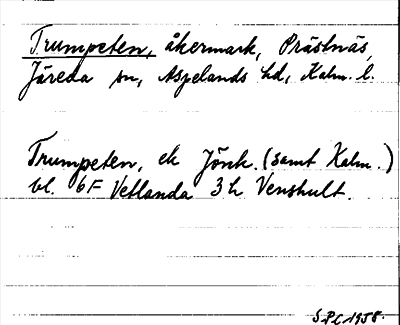 Trumpeten, åkermark, Prästnäs,
Järeda sn, Aspelands hd, Kalm. l.
Trumpeten, ek Jönk. (samt Kalm.)
bl. 6F Vetlanda 3h Venshult.
S.P.C. 1958.